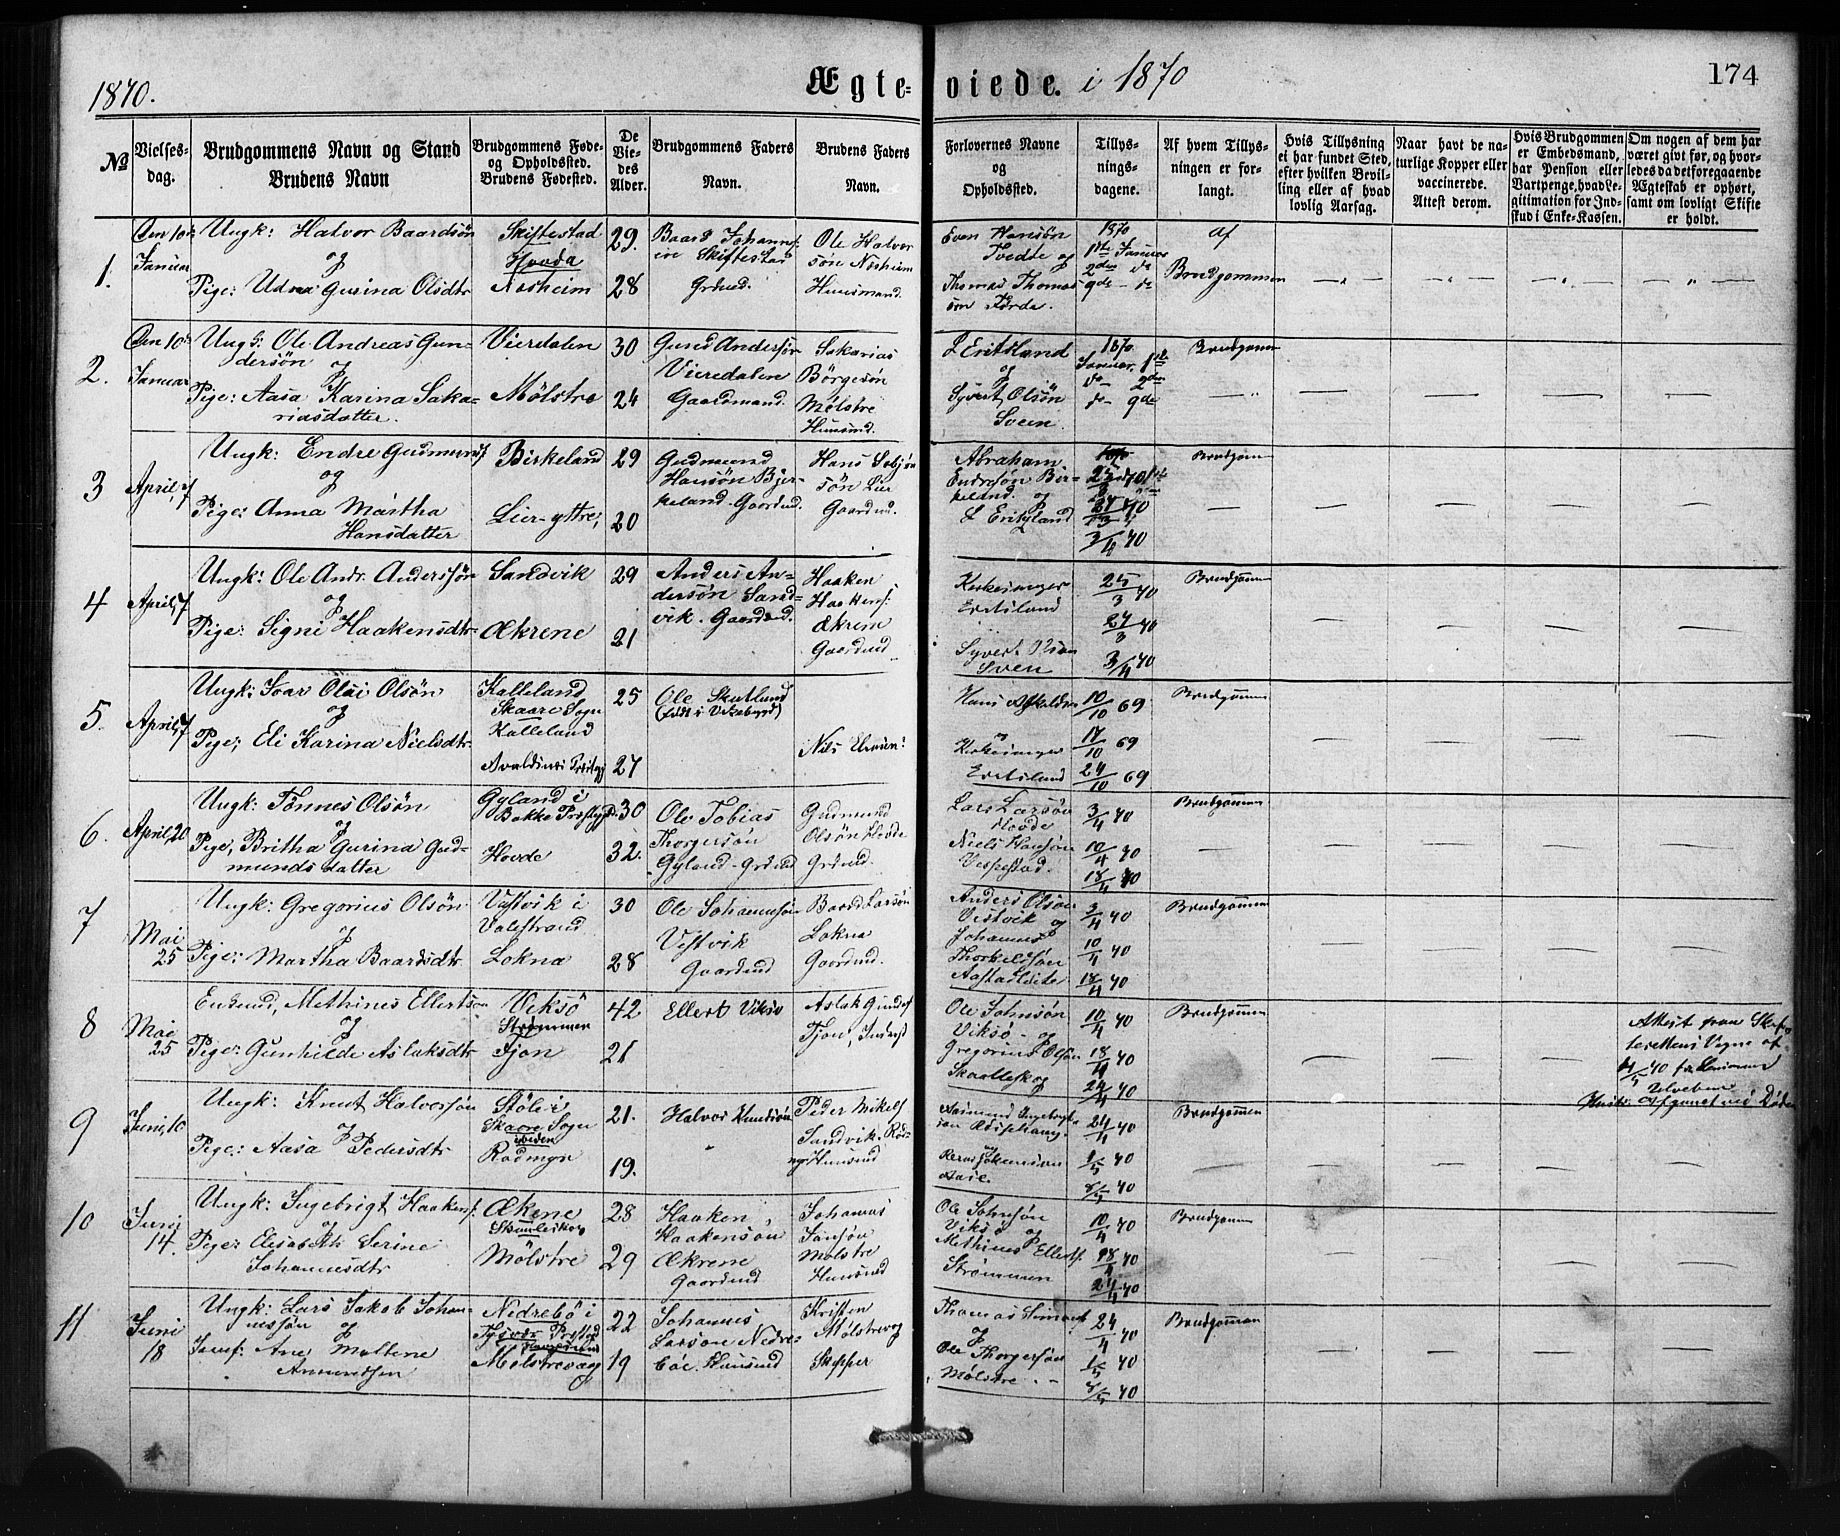 1870.
Ægte-viede. i 1870
174
№
Vielses-dag.
Brudgommens Navn og Stand
Brudens Navn
Brudgommens Føde- og Opholdssted.
Brudens Fødested.
De Viedes Alder.
Brudgommens Faders Navn.
Brudens Faders Navn.
Forlovernes Navne og Opholdssted.
Tillysningsdagene.
Af hvem Tillysningen er forlangt.
Hvis Tillysning ei har fundet Sted, efter hvilken Bevilling eller af hvad lovlig Aarsag.
Naar havt de naturlige Kopper eller vaccinerede. Attest derom.
Hvis Brudgommen er Embedsmand, har Pension eller Vartpenge, hvad Legitimation for Indskud i Enke-Kassen.
Om nogen af dem har været givt før, og hvorledes da det foregaaende Ægteskab er ophørt, samt om lovligt Skifte er holdt.
1.
Den 10de Januar
Ungk: Halvor Baardsøn
og
Pige: Udna Gurina Olsdtr
Skiftestad
Hovda
Aasheim
29.
28
Baard Johannes:
Skiftestad
Grdmd.
Ole Halvorsøn
Huusmand.
Even Hansøn
Tvedte og
Thomas Thomassøn Førde.
1870
1ste Januar
2den do
9de - do
Af
Brudgommen
2.
Den 10de Januar
Ungk: Ole Andreas Gundersøn
og
Pige: Aasa Karina Sakariasdatter.
Vierdalen
Mølstre
30
24
Gund Andersøn
Vieredalen
Gaardmand.
Sakarias
Børgesøn
Mølstre
Huusmd.
L Eritsland
og
Syvert Olsøn
Svein.
1870
Januar 1ste
do - 2den
do - 9de
Brudgommen
3
April, 7
Ungk: Endre Gudmunds:
og
Pige: Anna Martha
Hansdatter
Birkeland
Lier-yttre,
29
20
Gudmund
Hansøn Bjerkeland. Gaardmd.
Hans
Lier
Gaardmd.
Abraham
Endresøn Birkeland. og
L Eritsland
3/4 70
Brudgom
4
April, 7
Ungk: Ole Andr. Anderssøn
og
Pige: Signi Haakensdtr
Sandvik
Ækrene
29
21
Anders Andersøn Sandvik. Gaardmd.
Haaken
Haakens:
Ækren
Gaardmd
Kirkesanger
Eritsland
Syvert Olsøn
Sven
25/3 70
27/3 70
3/4 70
Brudgommen
5.
April, 7
Ungk: Ivar Olai Olsøn
og
Pige; Eli Karina Nielsdtr
Kalleland
Skaare Sogn
Kalleland
25
27
Ole
(født i Vikebygd)
Nils
Hans
og
Kirkesanger
Eritsland
10/10 69
17/10 69
24/10 69
Brudgommen
6.
April, 20
Ungk: Tønnes Olsøn
og
Pige, Britha Gurina Gudmundsdatter
Gyland i
Bakke Præstegjd
Hovde
30
32.
Ole Tobias
Thorgersøn
Gyland - Grdmd
Gudmund
Olsøn Hovde
Grdmd.
Lars Larsøn
Hovde
Niels Hansøn
Vespestad.
3/4 70
10/4 70
18/4 70
Brudgommen
7
Mai 25
Ungk: Gregorius Olsøn
og
Pige: Martha Baardsdtr
Vestvik i
Valestrand
Lokna
30
28
Ole Johannessøn
Vestvik
Gaardmd
Baard Larsøn
Lokna
Gaardmd.
Anders Olsøn
Vestvik og
Johannes
Thorkelsøn
3/4 70
10/4 70
18/4 70
Brudgommen
8
Mai 25
Enkemd, Methines Ellertsøn
og
Pige: Gunhilde Aslaksdtr
Viksø
Strømmen
Tjon
42
21
Ellert Viksø
Aslak
Tjon,
Ole Johnsøn
Viksø - og
Gregorius Olsøn
Skaalleskog
10/4 70
18/4 70
24/4 70
Brudgommen
Attest fra Skifterettens Vegne af
Hustr: afgaaet ved Døden
9
Juni, 10
Ungk: Knut Halvorsøn
og
Pige: Aasa Pedersdtr
Støle i
Skaare Sogn
Rødmyr
21.
19.
Halvor Knudsøn
Peder Mikels
Sandvik. Rødmyr Huusmd
24/4 70
1/5 70
8/5 70
Brudgommen
10
Juni 14.
Ungk: Ingebrigt Haakens:
og
Pige: Elisabeth Serine
Johannesdtr
Ækrene
Mølstre
28
29
Haaken
Haakensøn
Ækrene
Gaardmd
Johannes
Jansøn
Mølstre
Huusmd
Ole Johnsøn
Viksø og
Methines Ellerts.
Strømmen
10/4 70
18/4 70
24/4 70
Brudgommen
11
Juni 18
Ungk: Lars Jakob Johannessøn
og
Jomf: Ane Maltene
Ammundsen
Nedrebø i
Tysvær Prestegd
Mølstrevaag
22
19
Johannes
Larsøn Nedrebøe. Huusmd
Kristen
Mølstrevog
Skipper
Thomas Simons:
og
Ole Thorgersøn
Mølstre
24/4 70
1/5 70
8/5 70
Brudgommen